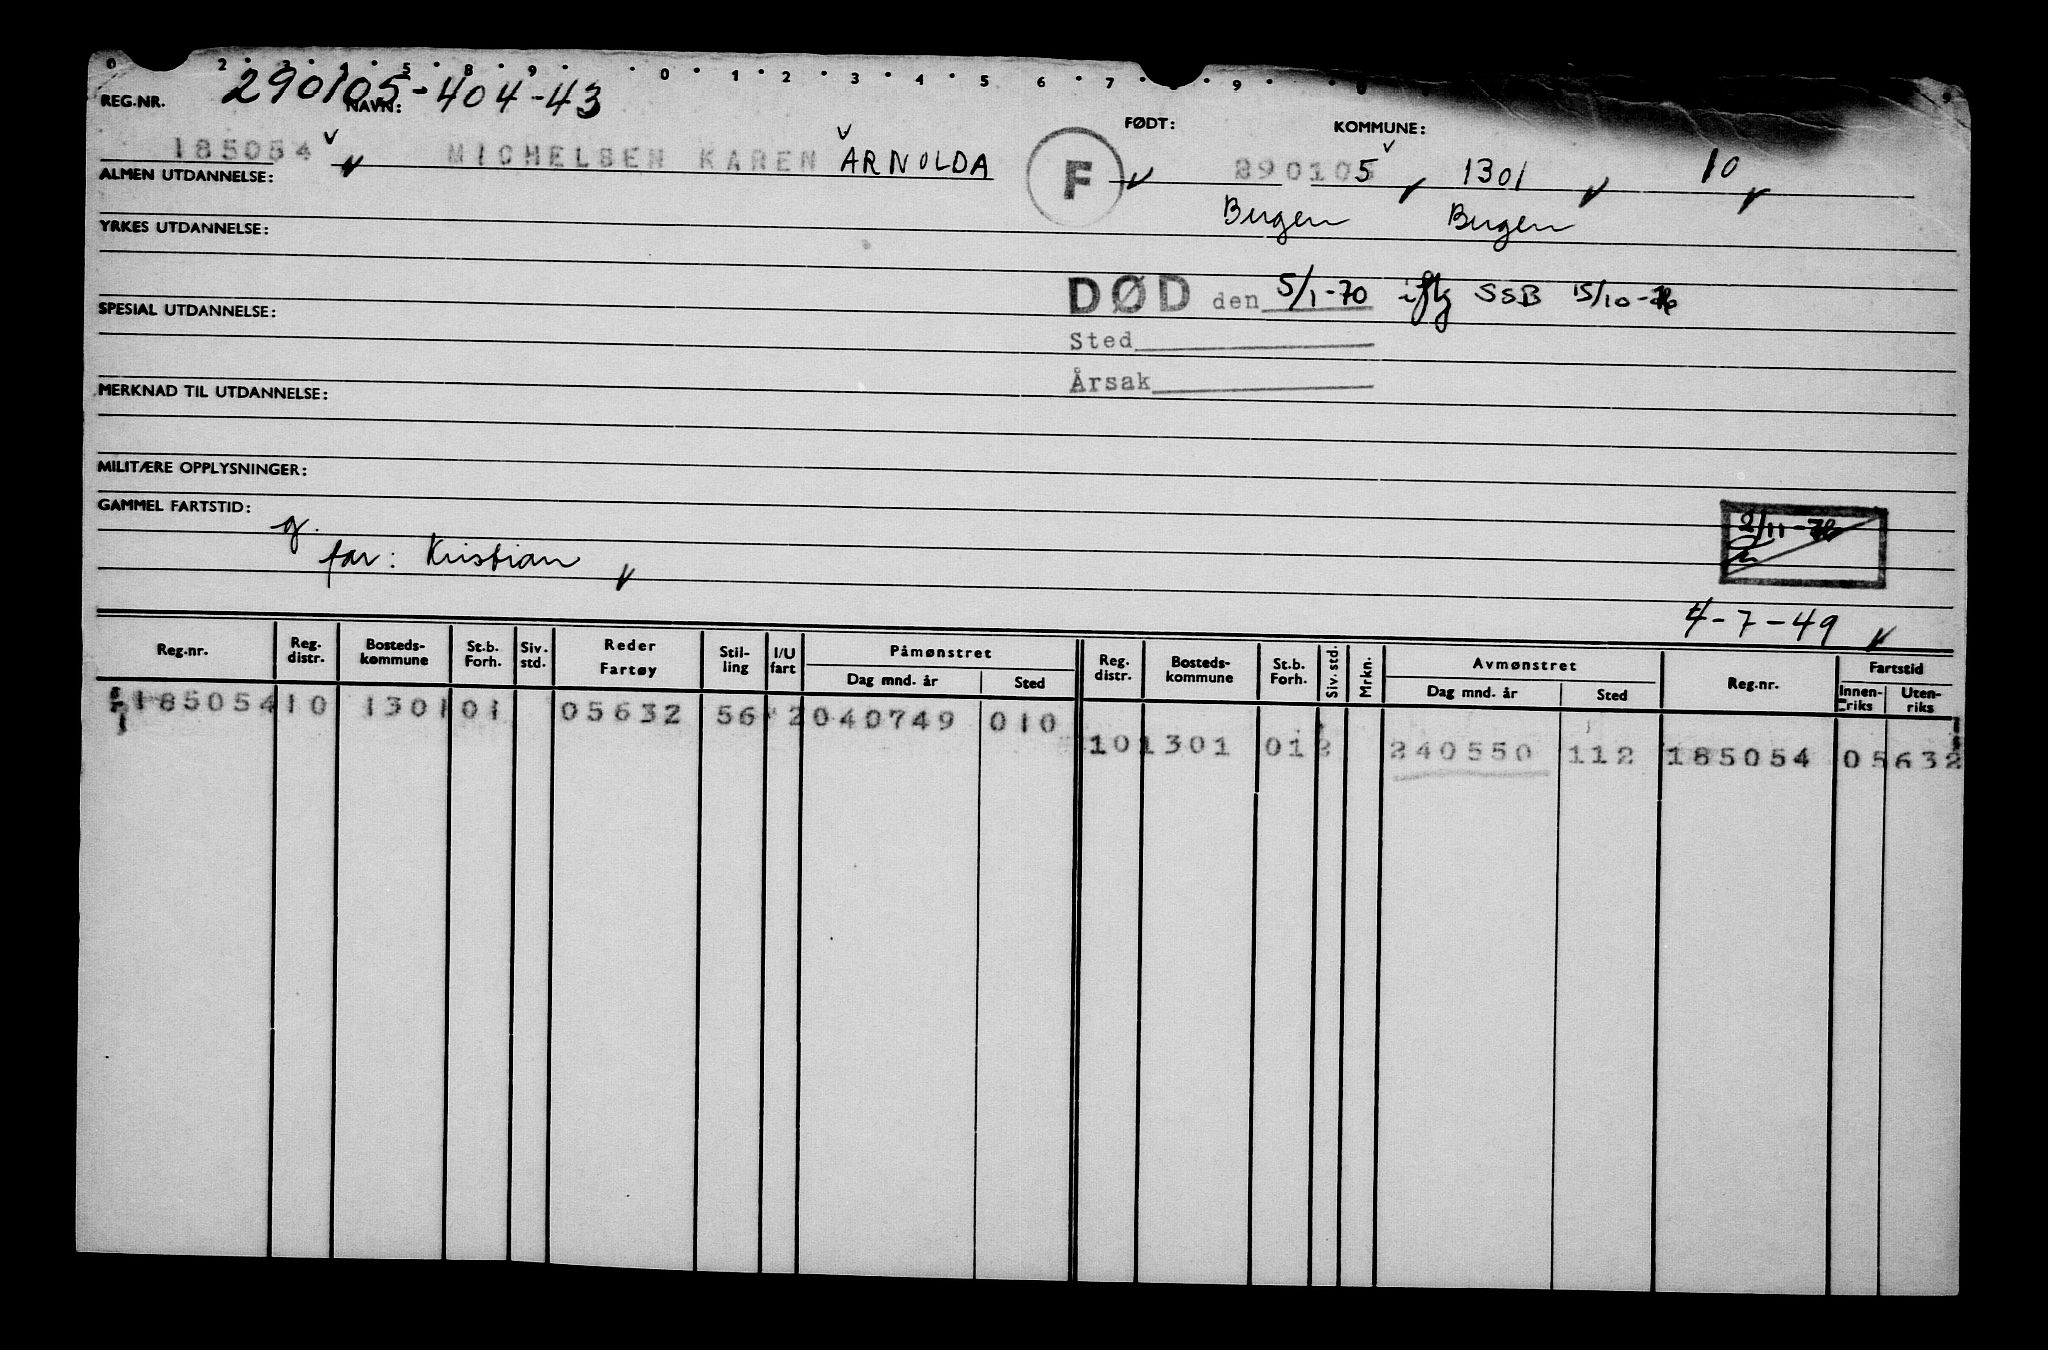 0 2 3 4 5 8 9 0 1 2 3 4 5 6 7 9
290105-404-43
REG.NR. NAVN: FØDT: KOMMUNE:
185054 MICHELSEN KAREN ARNOLDA F 290105 1301 10
ALMEN UTDANNELSE:
Bergen Bergen
YRKES UTDANNELSE:
DØD den 5/1-70 iflg SSB 15/10-76
SPESIAL UTDANNELSE:
Sted
Årsak
MERKNAD TIL UTDANNELSE:
MILITÆRE OPPLYSNINGER:
GAMMEL FARTSTID:
g.
2/11-76
far: Kristian
4-7-49
Reg.nr. Reg. distr. Bosteds-kommune St.b. Forh. Siv. std. Reder Fartøy Stil-ling I/U fart Påmønstret Dag mnd. år Sted Reg. distr. Bosteds-kommune St.b. Forh. Siv. std. Mrkn. Avmønstret Dag mnd. år Sted Reg.nr. Fartstid Innen-riks Uten-riks
185054 10 1301 01 05632 56 2 040749 010
10 1301 01 2 240550 112 185054 05632